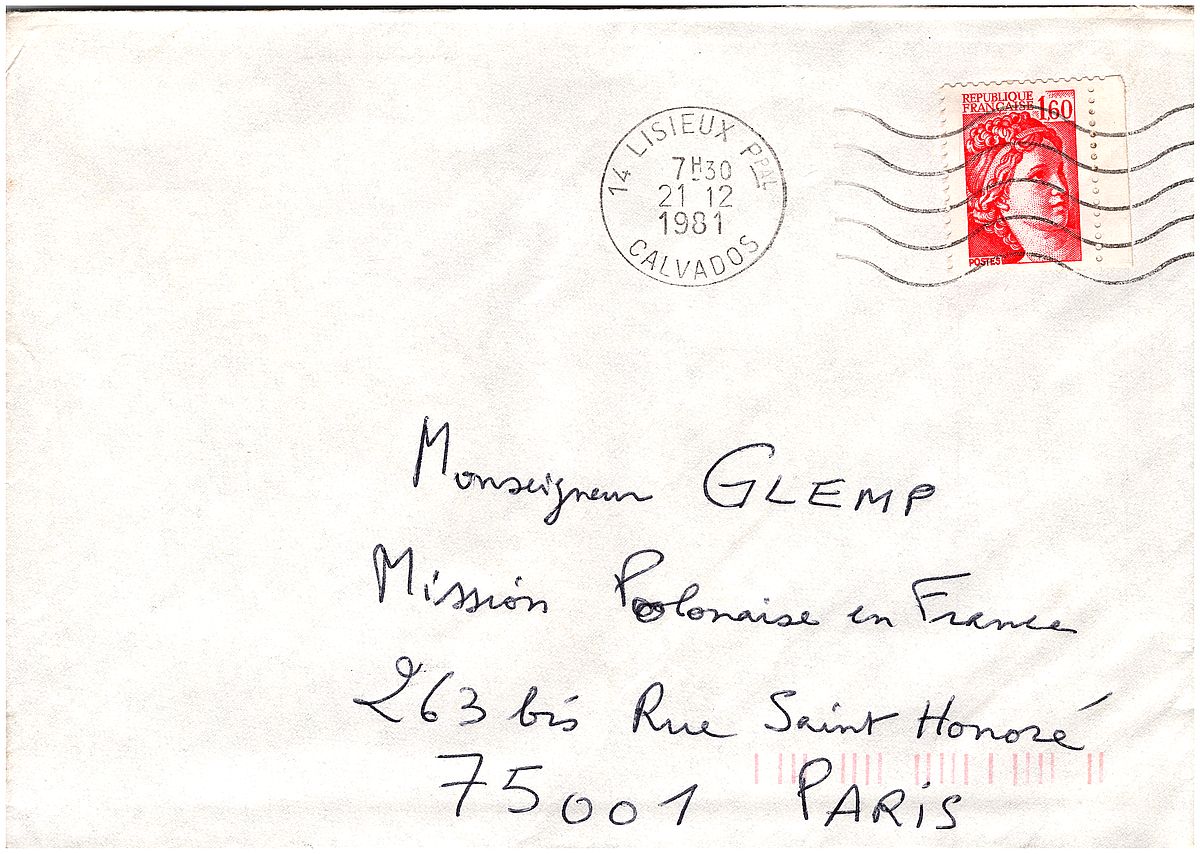 RÉPUBLIQUE
FRANÇAISE 1,60
POSTES
14 LISIEUX PPAL
7H30
21 12
1981
CALVADOS
Monseigneur GLEMP
Mission Polonaise en France
263 bis Rue Saint Honoré
75001 PARIS